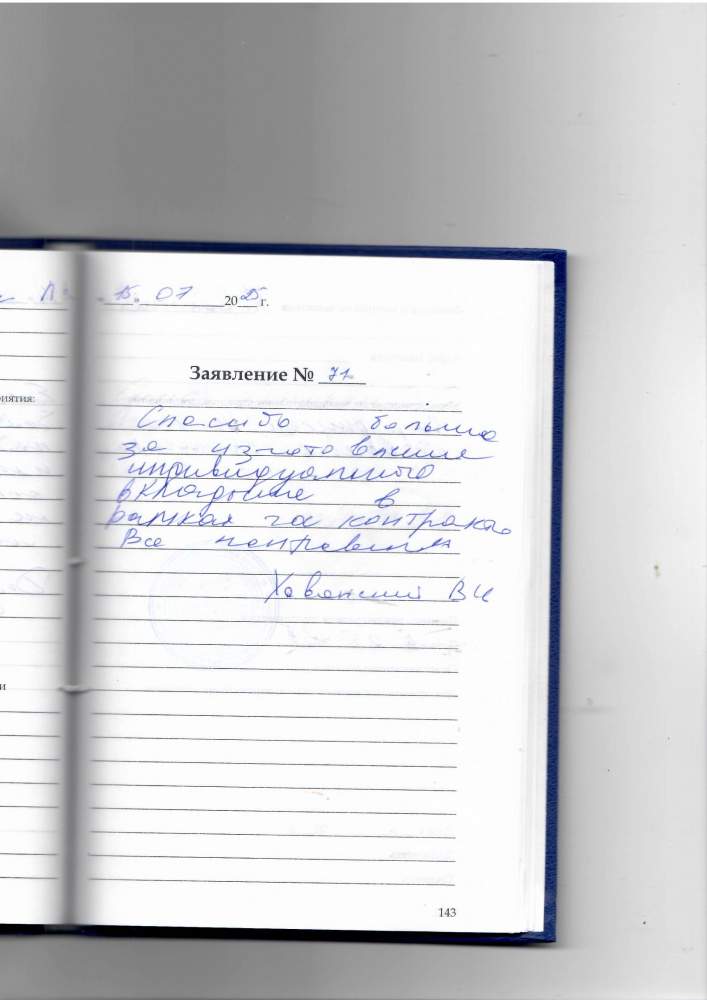 15. 07 2025 г.
Заявление № 71
риятия:
Спасибо большое
за изготовление
индивидуального
вкладыша в
рамках гос контракта
Все понравилось
Хованский ВИ
и
143